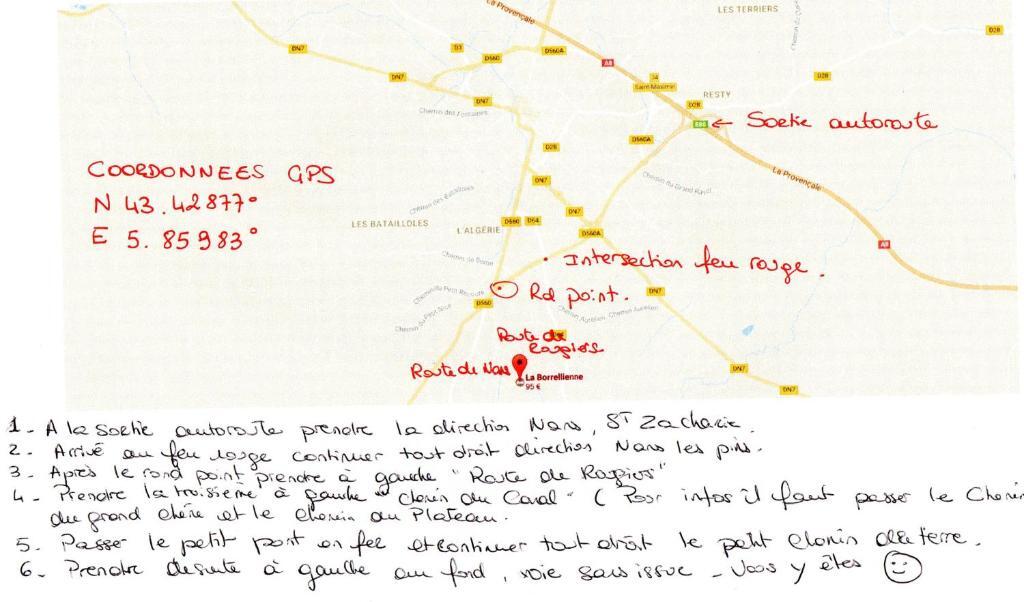 La Provençale
LES TERRIERS
DN7
D3
D560
D560A
A8
D28
D28
34
Saint-Maximin
DN7
RESTY
DN7
D28
Chemin des Fontaines
E80
← Sortie autoroute
D560A
D28
La Provençale
COORDONNEES GPS
DN7
Chemin du Grand Rayol
N 43.42877°
Chemin des Batailloles
DN7
LES BATAILLOLES
D560
D64
L'ALGÉRIE
D560A
E 5.85983°
A8
• Intersection feu rouge.
Chemin du Petit Recours
Rd point.
DN7
D560
Chemin du Petit Nice
Chemin Aurélien
Chemin Aurélien
Route de
Raspiers
Route de Nans
La Borrellienne
95 €
DN7
DN7
1- A la sortie autoroute prendre la direction Nans, ST Zacharie.
2- Arrivé au feu rouge continuer tout droit direction Nans les pins.
3- Après le rond point prendre à gauche "Route de Raspiers"
4- Prendre la troisième à gauche "chemin du Canal" (Pour infos il faut passer le Chemin
du grand chêne et le chemin du Plateau.
5- Passer le petit pont en fer et continuer tout droit le petit chemin de terre.
6- Prendre desuite à gauche au fond, voie sans issue - Vous y êtes